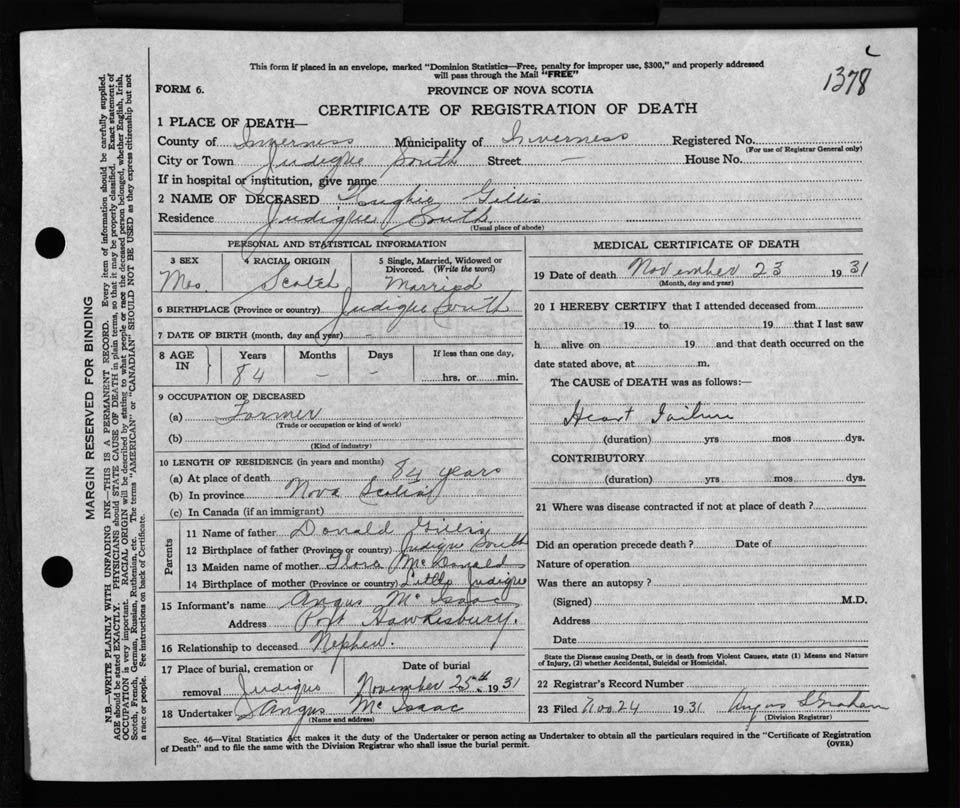 This form if placed in an envelope, marked "Dominion Statistics—Free, penalty for improper use, $300," and properly addressed
will pass through the Mail "FREE"
1378
FORM 6.
PROVINCE OF NOVA SCOTIA
CERTIFICATE OF REGISTRATION OF DEATH
1 PLACE OF DEATH—
County of Inverness Municipality of Inverness Registered No.
(For use of Registrar General only)
City or Town Judique South Street — House No.
If in hospital or institution, give name
2 NAME OF DECEASED Hughie Gillis
Residence Judique South
(Usual place of abode)
PERSONAL AND STATISTICAL INFORMATION
3 SEX 4 RACIAL ORIGIN 5 Single, Married, Widowed or Divorced. (Write the word)
Scotch Married
6 BIRTHPLACE (Province or country) Judique South
7 DATE OF BIRTH (month, day and year) -
8 AGE IN Years Months Days If less than one day,
84 - - hrs. or min.
9 OCCUPATION OF DECEASED
(a) Farmer
(Trade or occupation or kind of work)
(b)
(Kind of industry)
10 LENGTH OF RESIDENCE (in years and months)
(a) At place of death 84 years
(b) In province Nova Scotia
(c) In Canada (if an immigrant)
Parents
11 Name of father Donald Gillis
12 Birthplace of father (Province or country) Judique South
13 Maiden name of mother Flora McDonald
14 Birthplace of mother (Province or country) Little Judique
15 Informant's name Angus McIsaac
Address Port Hawkesbury.
16 Relationship to deceased Nephew.
17 Place of burial, cremation or removal Judique
Date of burial
November 25th 1931
18 Undertaker Angus McIsaac
(Name and address)
MEDICAL CERTIFICATE OF DEATH
19 Date of death November 23 1931
(Month, day and year)
20 I HEREBY CERTIFY that I attended deceased from
19 to 19 that I last saw
h alive on 19 and that death occurred on the
date stated above, at m.
The CAUSE of DEATH was as follows:—
Heart Failure
(duration) yrs mos dys.
CONTRIBUTORY
(duration) yrs mos dys.
21 Where was disease contracted if not at place of death?
Did an operation precede death? Date of
Nature of operation
Was there an autopsy?
(Signed) M.D.
Address
Date
State the Disease causing Death, or in death from Violent Causes, state (1) Means and Nature
of Injury, (2) whether Accidental, Suicidal or Homicidal.
22 Registrar's Record Number
23 Filed Nov 24 1931 Angus Graham
(Division Registrar)
Sec. 46—Vital Statistics Act makes it the duty of the Undertaker or person acting as Undertaker to obtain all the particulars required in the "Certificate of Registration
of Death" and to file the same with the Division Registrar who shall issue the burial permit.
(OVER)
MARGIN RESERVED FOR BINDING
N.B.—WRITE PLAINLY WITH UNFADING INK—THIS IS A PERMANENT RECORD. Every item of information should be carefully supplied.
AGE should be stated EXACTLY. PHYSICIANS should STATE CAUSE OF DEATH in plain terms, so that it may be properly classified. Exact statement of
OCCUPATION is very important. RACIAL ORIGIN will be described by stating to what people or race the deceased person belonged, whether English, Irish,
Scotch, French, German, Russian, Ruthenian, etc. The terms "AMERICAN" or "CANADIAN" SHOULD NOT BE USED as they express citizenship but not
a race or people. See instructions on back of Certificate.